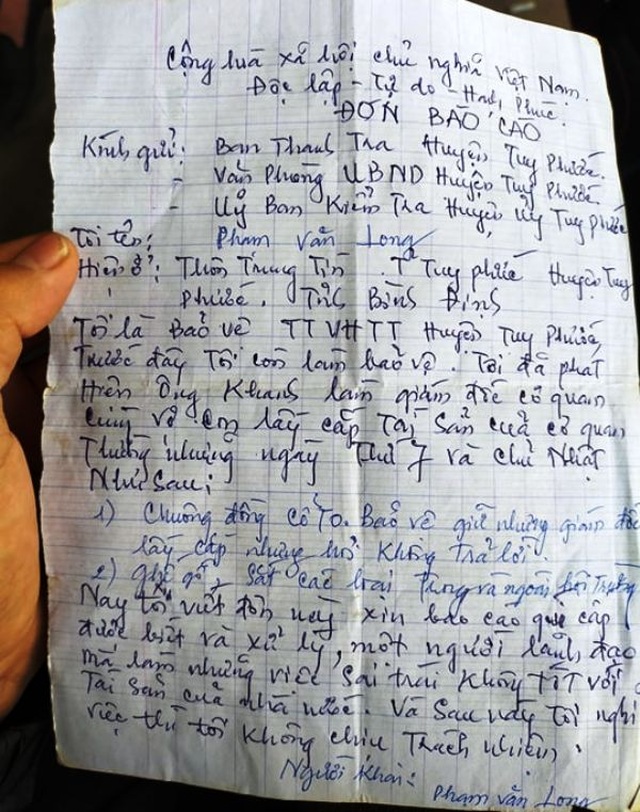 Cộng hoà xã hội chủ nghĩa Việt Nam.
Độc lập - Tự do - Hạnh Phúc.
ĐƠN BÁO CÁO
Kính gửi: Ban Thanh Tra Huyện Tuy Phước.
- Văn Phòng UBND Huyện Tuy Phước
- Uỷ Ban Kiểm Tra Huyện Uỷ Tuy phước
Tôi tên: Phạm Văn Long
Hiện ở: Thôn Trung Tín . T² Tuy phước Huyện Tuy
phước. Tỉnh Bình Định
Tôi là Bảo vệ TTVHTT Huyện Tuy Phước,
Trước đây Tôi còn làm bảo vệ. Tôi đã phát
Hiện ông Khanh làm giám đốc cơ quan
cùng vợ con lấy cắp Tài Sản của cơ quan
Thường những ngày Thứ 7 và chủ Nhật
Như Sau:
1) Chuông đồng cổ To. Bảo vệ giữ nhưng giám đốc
lấy cắp nhưng hỏi không trả lời.
2) ghế gỗ, Sắt các loại Trong và ngoài hội Trường
Nay tôi viết đơn này xin báo cáo quý cấp
được biết và xử lý, một người lãnh đạo
mà làm những việc Sai trái không tốt với
Tài Sản của nhà nước. Và Sau này tôi nghỉ
việc thì tôi không chịu Trách nhiệm.
Người khai:
Phạm Văn Long